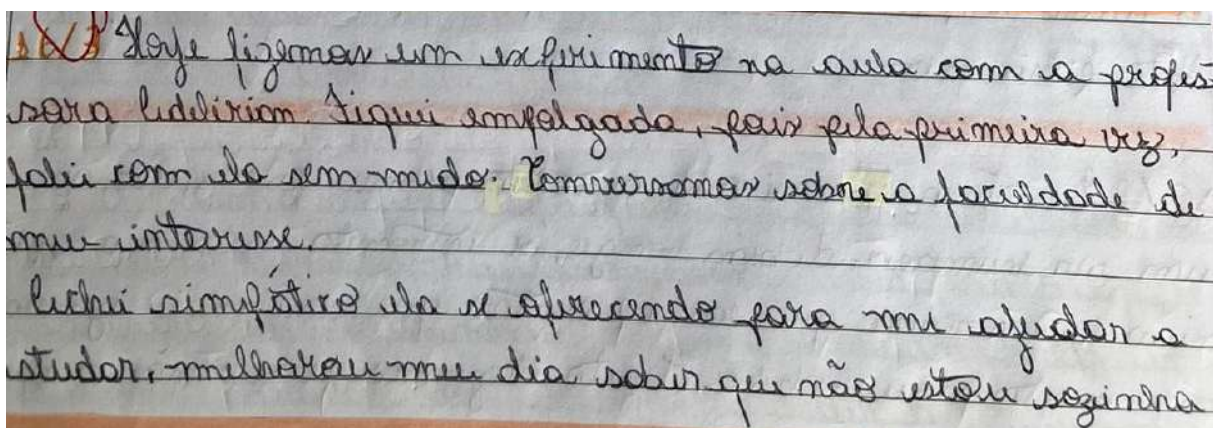 Hoje fizemos um experimento na aula com a profes-
sora Adelirian. Fiquei empolgada, pois pela primeira vez,
falei com ela sem medo. Comversamos sobre a faculdade de
meu interesse.
Achei simpático ela se oferecendo para me ajudar a
studar, melhorou meu dia saber que não estou sozinha